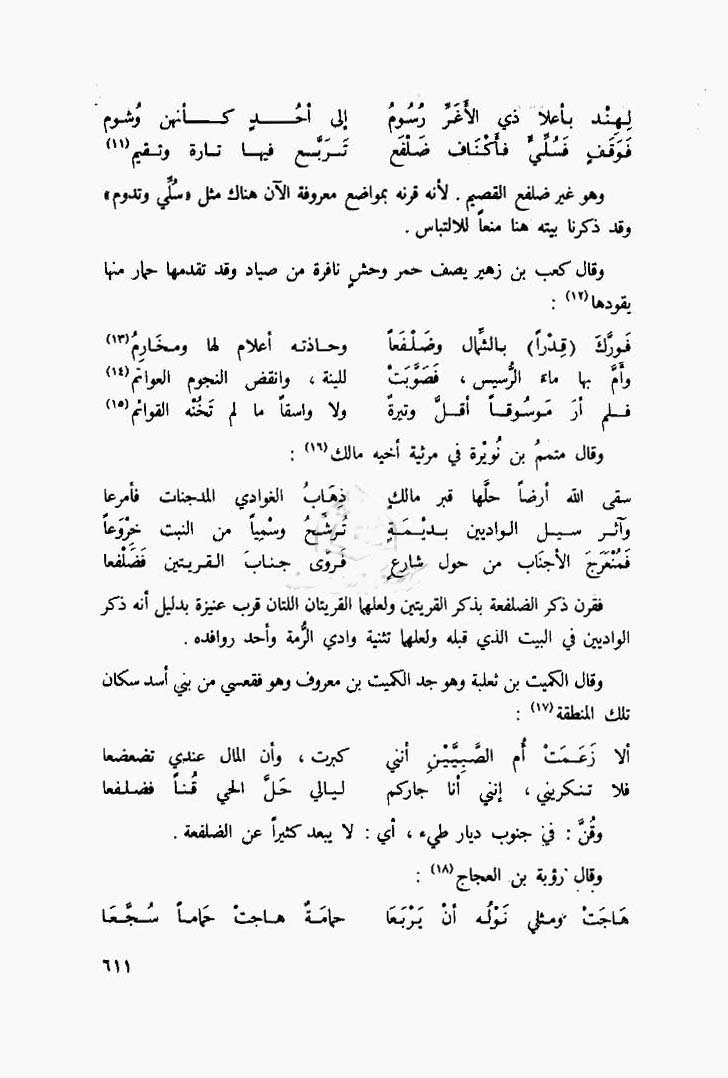 لِهِنْد بأعلا ذي الأَغَرِّ رُسُومُ إلى أحُـــدٍ كـــأنهن وُشوم
فَوَقَفٍ فَسُلِّيٍّ فأكْنَاف ضَلْفَع تَرَبَّـع فيهـا تـارة وتـقيم(١١)
وهو غير ضلفع القصيم . لأنه قرنه بمواضع معروفة الآن هناك مثل «سُلِّي وتدوم»
وقد ذكرنا بيته هنا منعاً للالتباس .
وقال كعب بن زهير يصف حمر وحشٍ نافرة من صياد وقد تقدمها حمار منها
يقودها(١٢) :
فَورَّكَ (قِدْراً) بالشِّمال وضَلْفَعاً وحـاذته أعلام لها ومخَارِمُ(١٣)
وأمَّ بها ماءَ الرُّسيس ، فَصَوَّبَتْ للينة ، وانقض النجوم العواتم(١٤)
فلم أرَ مَوسُوقـاً أقلَّ وتيرةً ولا واسقاً ما لم تَخُنْه القوائم(١٥)
وقال متممُ بن نُويْرة في مرثية أخيه مالك(١٦) :
سقى الله أرضاً حلَّها قبر مالكٍ ذِهَابُ الغوادي المدجنات فأمرعا
وآثر سيل الواديين بدِيْمَةٍ تُرشِّحُ وسْمِياً من النبت خِرْوَعاً
فَمُنْعَرَجَ الأجنَاب من حول شارعٍ فَروّى جنابَ القريتين فَضَلْفعا
فقرن ذكر الضلفعة بذكر القريتين ولعلهما القريتان اللتان قرب عنيزة بدليل أنه ذكر
الواديين في البيت الذي قبله ولعلهما تثنية وادي الرُّمة وأحد روافده .
وقال الكميت بن ثعلبة وهو جد الكميت بن معروف وهو فقعسي من بني أسد سكان
تلك المنطقة(١٧) :
ألا زَعَمَتْ أُم الصَّبِيَّيْنِ أنني كبرت ، وأن المال عندي تضعضعا
فلا تنكريني ، إنني أنا جاركم ليالي حَلَّ الحي قُناً فضلفعا
وقُنَّ : في جنوب ديار طيء ، أي : لا يبعد كثيراً عن الضلفعة .
وقال رؤبة بن العجاج(١٨) :
هَاجَتْ ومثلي نَوْلُه أنْ يَرْبَعَا حمامَةٌ هاجتْ حَماماً سُجَّعَا
٦١١